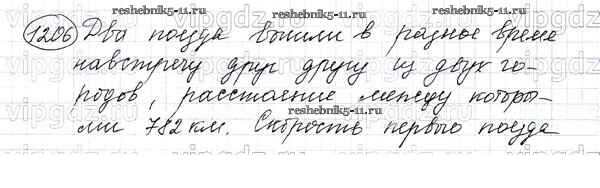 reshebnik5-11.ru reshebnik5-11.ru
1206 Два поезда вышли в разное время
навстречу друг другу из двух го-
родов, расстояние между которы-
reshebnik5-11.ru
ми 782 км. Скорость первого поезда